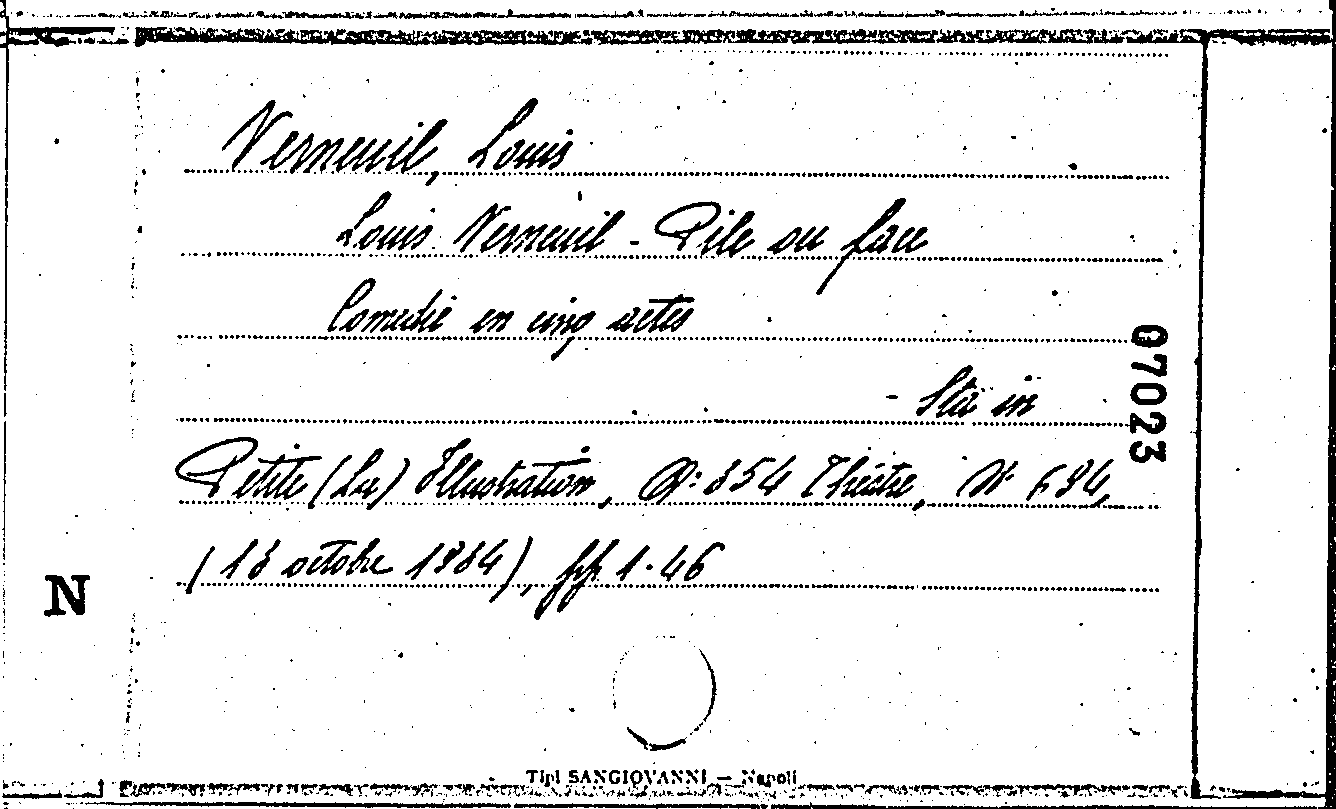 Verneuil, Louis
Louis Verneuil - Pile ou face
Comedie en cinq actes
- Sta in
Petite (La) Illustration, N: 354 Théatre, N 684,
(13 octobre 1934), pp. 1-46
07023
N
Tipi SANGIOVANNI — Napoli